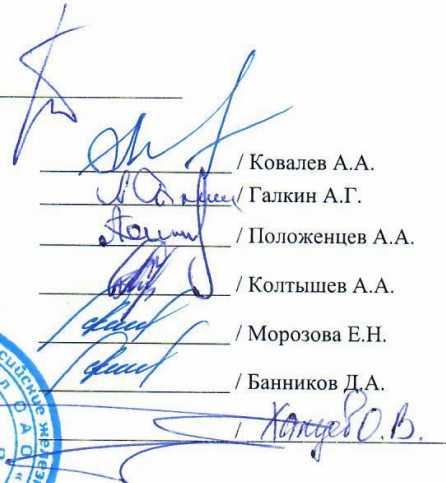 / Ковалев А.А.
/ Галкин А.Г.
/ Положенцев А.А.
/ Колтышев А.А.
/ Морозова Е.Н.
/ Банников Д.А.
/ О.В.